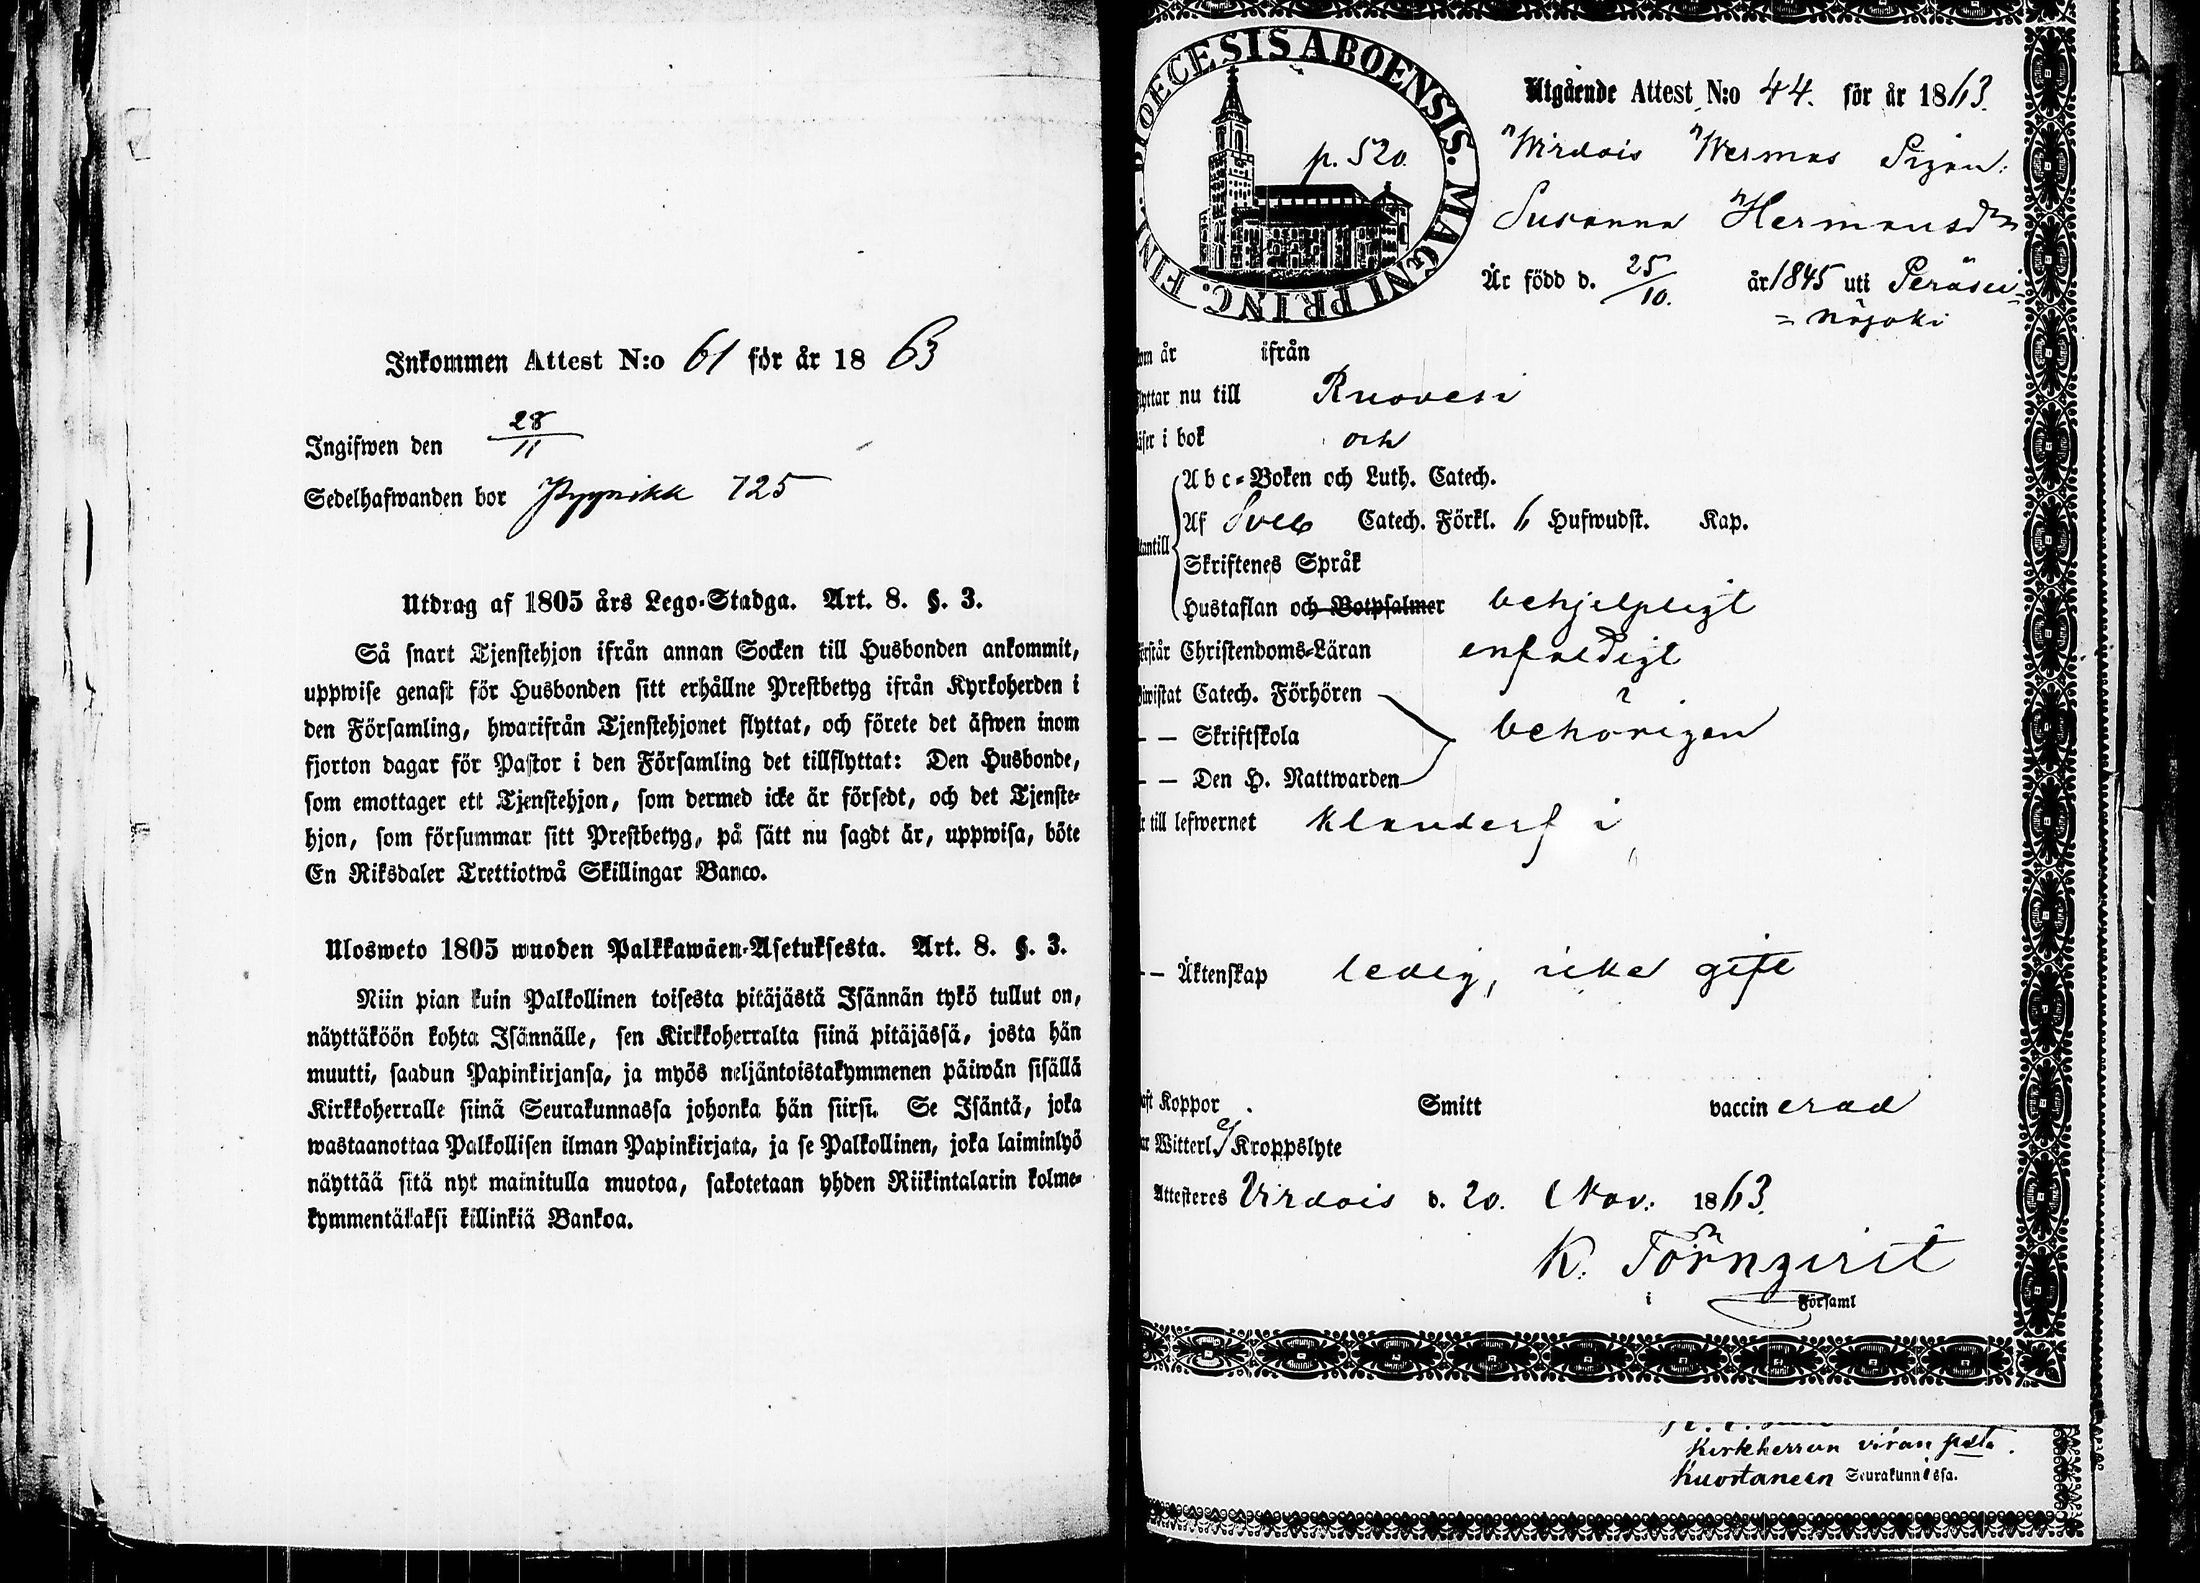 Inkommen Attest N:o 61 för år 1863
Ingifwen den 28/11
Sedelhafwanden bor 125
Utdrag af 1805 års Lego-Stadga. Art. 8. §. 3.
Så snart Tjenstehjon ifrån annan Socken till Husbonden ankommit,
uppwise genast för Husbonden sitt erhållne Prestbetyg ifrån Kyrkoherden i
den Församling, hwarifrån Tjenstehjonet flyttat, och förete det äfwen inom
fjorton dagar för Pastor i den Församling det tillflyttat: Den Husbonde,
som emottager ett Tjenstehjon, som dermed icke är försedt, och det Tjenste-
hjon, som försummar sitt Prestbetyg, på sätt nu sagdt är, uppwisa, böte
En Riksdaler Trettiotwå Skillingar Banco.
Ulosweto 1805 wuoden Palkkawäen-Asetuksesta. Art. 8. §. 3.
Niin pian kuin Palkollinen toisesta pitäjästä Isännän tykö tullut on,
näyttäköön kohta Isännälle, sen Kirkkoherralta siinä pitäjässä, josta hän
muutti, saadun Papinkirjansa, ja myös neljäntoistakymmenen päiwän sisällä
Kirkkoherralle siinä Seurakunnassa johonka hän siirsi. Se Isäntä, joka
wastaanottaa Palkollisen ilman Papinkirjata, ja se Palkollinen, joka laiminlyö
näyttää sitä nyt mainitulla muotoa, sakotetaan yhden Riikintalarin kolme-
kymmentäkaksi killinkiä Bankoa.
DIOECESIS ABOENSIS. MAGNI PRINC. FINL.
p. 520.
Utgående Attest N:o 44. för år 1863.
Wirdois Wermas Pigan.
Susanna Hermansdr
Är född d. 25/10. år 1845 uti Peräsei-
=näjoki
om år ifrån
flyttar nu till Ruovesi
läser i bok och
Abc-Boken och Luth. Catech.
Af Sveb Catech. Förkl. 6 Hufwudst. Kap.
utantill
Skriftenes Språk
Hustaflan och Botpsalmer behjelpligt
förstår Christendoms-Läran enfaldigt
biwistat Catech. Förhören
– – Skriftskola behörigen
– – Den H. Nattwarden
är till lefwernet klanderfri
– – Äktenskap ledig, icke gift
haft Koppor Smitt vaccinerad
har Witterl. ej Kroppslyte
Attesteres Virdois d. 20. Nov. 1863.
K. Törnqvist
i Församl
Kirkkherran viran
Kuortaneen Seurakunnissa.